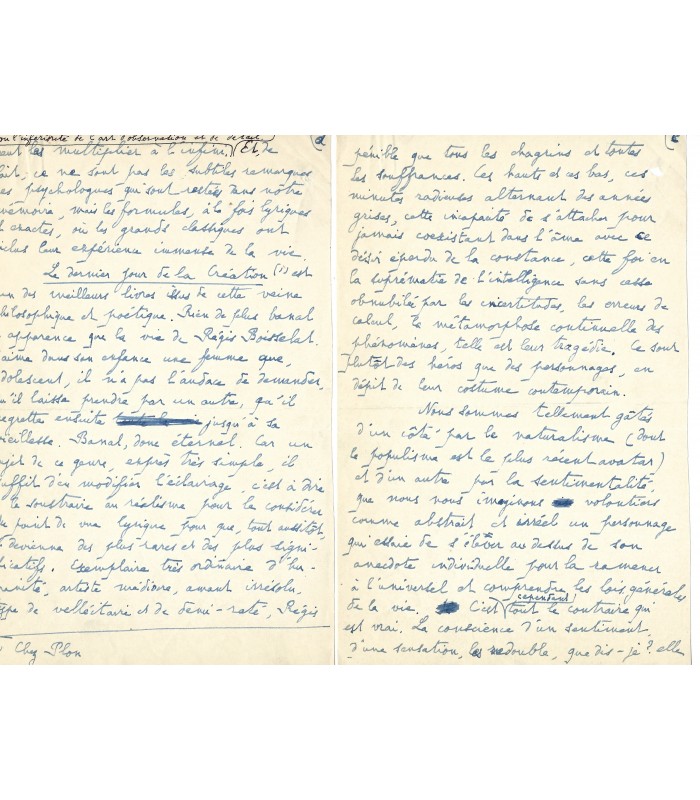 ou l'infériorité de l'art d'observation et de détail
les multiplier à l'infini. Et, de
ait, ce ne sont pas les subtiles remarques
es psychologues qui sont restées dans notre
mémoire, mais les formules, à la fois lyriques
t exactes, où les grands classiques ont
clus leur expérience immense de la vie.
Le dernier jour de la Création (1) est
un des meilleurs livres issus de cette veine
philosophique et poétique. Rien de plus banal
apparence que la vie de Régis Boisselat.
aime dans son enfance une femme que,
dolescent, il n'a pas l'audace de demander,
u'il laisse prendre par un autre, qu'il
regrette ensuite jusqu'à sa
vieillesse. Banal, donc éternel. Car un
ujet de ce genre, exprès très simple, il
uffit d'en modifier l'éclairage, c'est à dire
le soustraire au réalisme pour le considérer
du point de vue lyrique pour que, tout aussitôt,
devienne des plus rares et des plus signi-
ficatifs. Exemplaire très ordinaire d'hu-
manité, artiste médiocre, amant irrésolu,
type de velléitaire et de demi-raté, Régis
Chez Plon
pénible que tous les chagrins et toutes
les souffrances. Ces hauts et ces bas, ces
minutes radieuses alternant des années
grises, cette incapacité de s'attacher pour
jamais coexistant dans l'âme avec ce
désir éperdu de la constance, cette foi en
la suprématie de l'intelligence sans cesse
obnubilée par les incertitudes, les erreurs de
calcul, la métamorphose continuelle des
phénomènes, telle est leur tragédie. Ce sont
plutôt des héros que des personnages, en
dépit de leur costume contemporain.
Nous sommes tellement gâtés
d'un côté par le naturalisme (dont
le populisme est le plus récent avatar)
et d'un autre par la sentimentalité,
que nous nous imaginons volontiers
comme abstrait et irréel un personnage
qui essaie de s'élever au dessus de son
anecdote individuelle pour la ramener
à l'universel et comprendre les lois générales
de la vie. C'est cependant tout le contraire qui
est vrai. La conscience d'un sentiment,
d'une sensation, les redouble, que dis-je ? elle